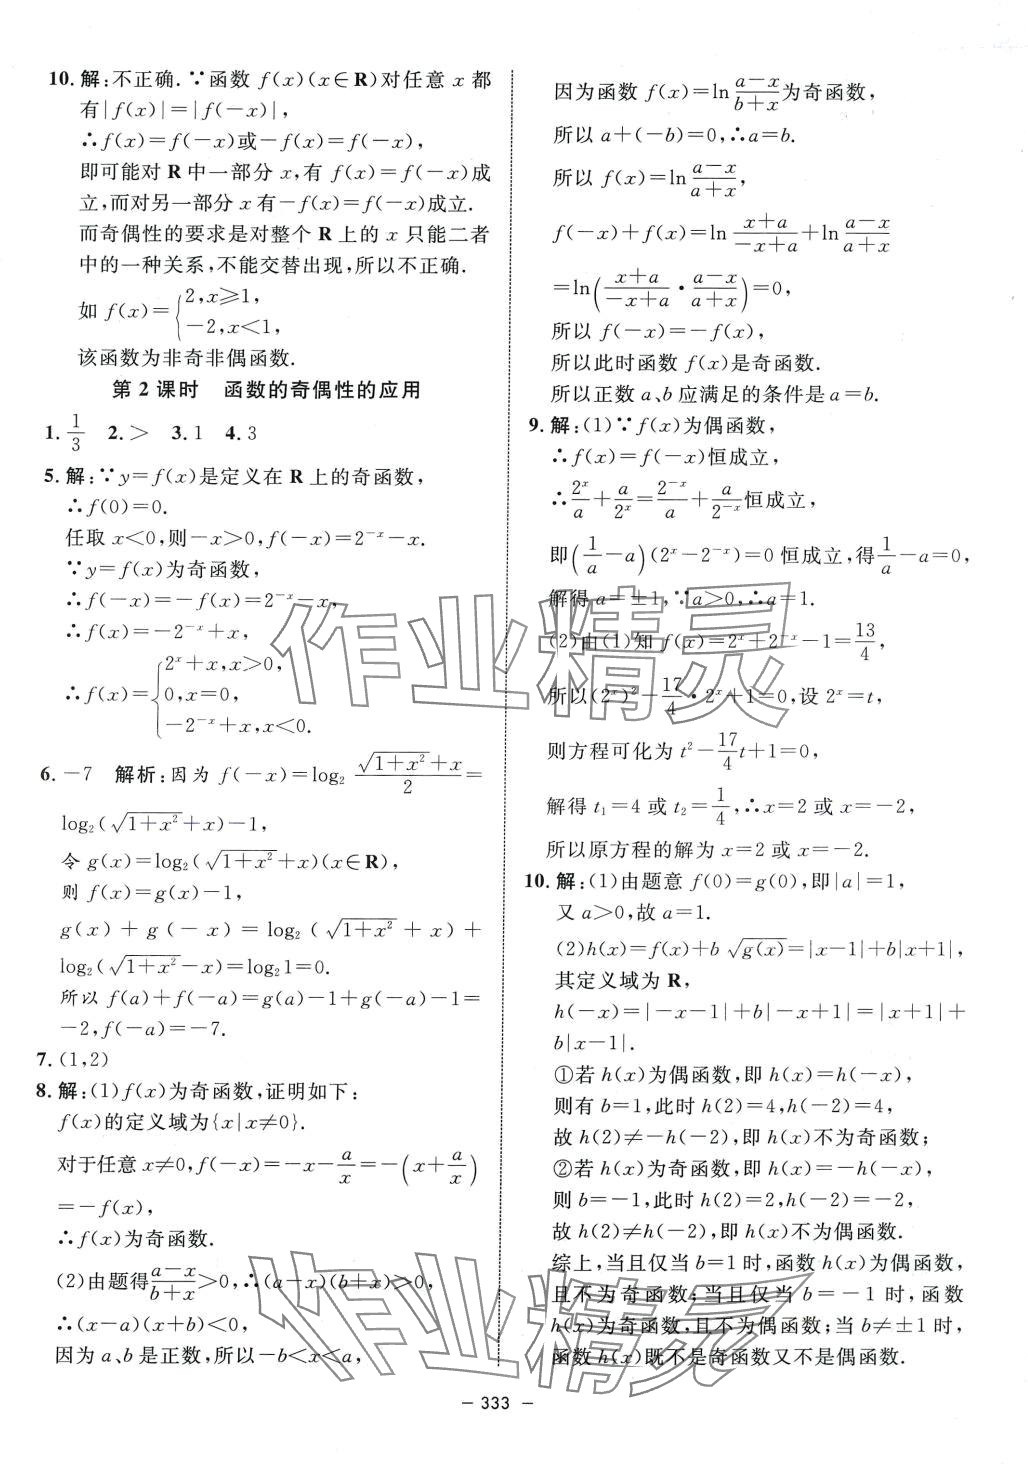 10.解:不正确.∵函数 f(x)(x∈R)对任意 x 都
有|f(x)|=|f(-x)|,
∴f(x)=f(-x)或-f(x)=f(-x),
即可能对 R 中一部分 x,有 f(x)=f(-x)成
立,而对另一部分 x 有-f(x)=f(-x)成立.
而奇偶性的要求是对整个 R 上的 x 只能二者
中的一种关系,不能交替出现,所以不正确.
如 f(x)={2,x≥1,
-2,x<1,
该函数为非奇非偶函数.
第 2 课时 函数的奇偶性的应用
1.1/3 2.> 3.1 4.3
5.解:∵y=f(x)是定义在 R 上的奇函数,
∴f(0)=0.
任取 x<0,则-x>0,f(-x)=2^{-x}-x.
∵y=f(x)为奇函数,
∴f(-x)=-f(x)=2^{-x}-x,
∴f(x)=-2^{-x}+x,
∴f(x)={2^x+x,x>0,
0,x=0,
-2^{-x}+x,x<0.
6.-7 解析:因为 f(-x)=log₂ (√(1+x²)+x)/2=
log₂(√(1+x²)+x)-1,
令 g(x)=log₂(√(1+x²)+x)(x∈R),
则 f(x)=g(x)-1,
g(x)+g(-x)=log₂(√(1+x²)+x)+
log₂(√(1+x²)-x)=log₂1=0.
所以 f(a)+f(-a)=g(a)-1+g(-a)-1=
-2,f(-a)=-7.
7.(1,2)
8.解:(1)f(x)为奇函数,证明如下:
f(x)的定义域为{x|x≠0}.
对于任意 x≠0,f(-x)=-x-a/x=-(x+a/x)
=-f(x),
∴f(x)为奇函数.
(2)由题得(a-x)/(b+x)>0,∴(a-x)(b+x)>0,
∴(x-a)(x+b)<0,
因为 a、b 是正数,所以-b<x<a,
因为函数 f(x)=ln (a-x)/(b+x)为奇函数,
所以 a+(-b)=0,∴a=b.
所以 f(x)=ln (a-x)/(a+x),
f(-x)+f(x)=ln (x+a)/(-x+a)+ln (a-x)/(a+x)
=ln((x+a)/(-x+a)·(a-x)/(a+x))=0,
所以 f(-x)=-f(x),
所以此时函数 f(x)是奇函数.
所以正数 a、b 应满足的条件是 a=b.
9.解:(1)∵f(x)为偶函数,
∴f(x)=f(-x)恒成立,
∴2^x/a+a/2^x=2^{-x}/a+a/2^{-x}恒成立,
即(1/a-a)(2^x-2^{-x})=0 恒成立,得1/a-a=0,
解得 a=±1,∵a>0,∴a=1.
(2)由(1)知 f(x)=2^x+2^{-x}-1=13/4,
所以(2^x)²-17/4·2^x+1=0,设 2^x=t,
则方程可化为 t²-17/4t+1=0,
解得 t₁=4 或 t₂=1/4,∴x=2 或 x=-2,
所以原方程的解为 x=2 或 x=-2.
10.解:(1)由题意 f(0)=g(0),即|a|=1,
又 a>0,故 a=1.
(2)h(x)=f(x)+b√g(x)=|x-1|+b|x+1|,
其定义域为 R,
h(-x)=|-x-1|+b|-x+1|=|x+1|+
b|x-1|.
①若 h(x)为偶函数,即 h(x)=h(-x),
则有 b=1,此时 h(2)=4,h(-2)=4,
故 h(2)≠-h(-2),即 h(x)不为奇函数;
②若 h(x)为奇函数,即 h(x)=-h(-x),
则 b=-1,此时 h(2)=2,h(-2)=-2,
故 h(2)≠h(-2),即 h(x)不为偶函数.
综上,当且仅当 b=1 时,函数 h(x)为偶函数,
且不为奇函数;当且仅当 b=-1 时,函数
h(x)为奇函数,且不为偶函数;当 b≠±1 时,
函数 h(x)既不是奇函数又不是偶函数.
作业精灵
作业精灵
- 333 -